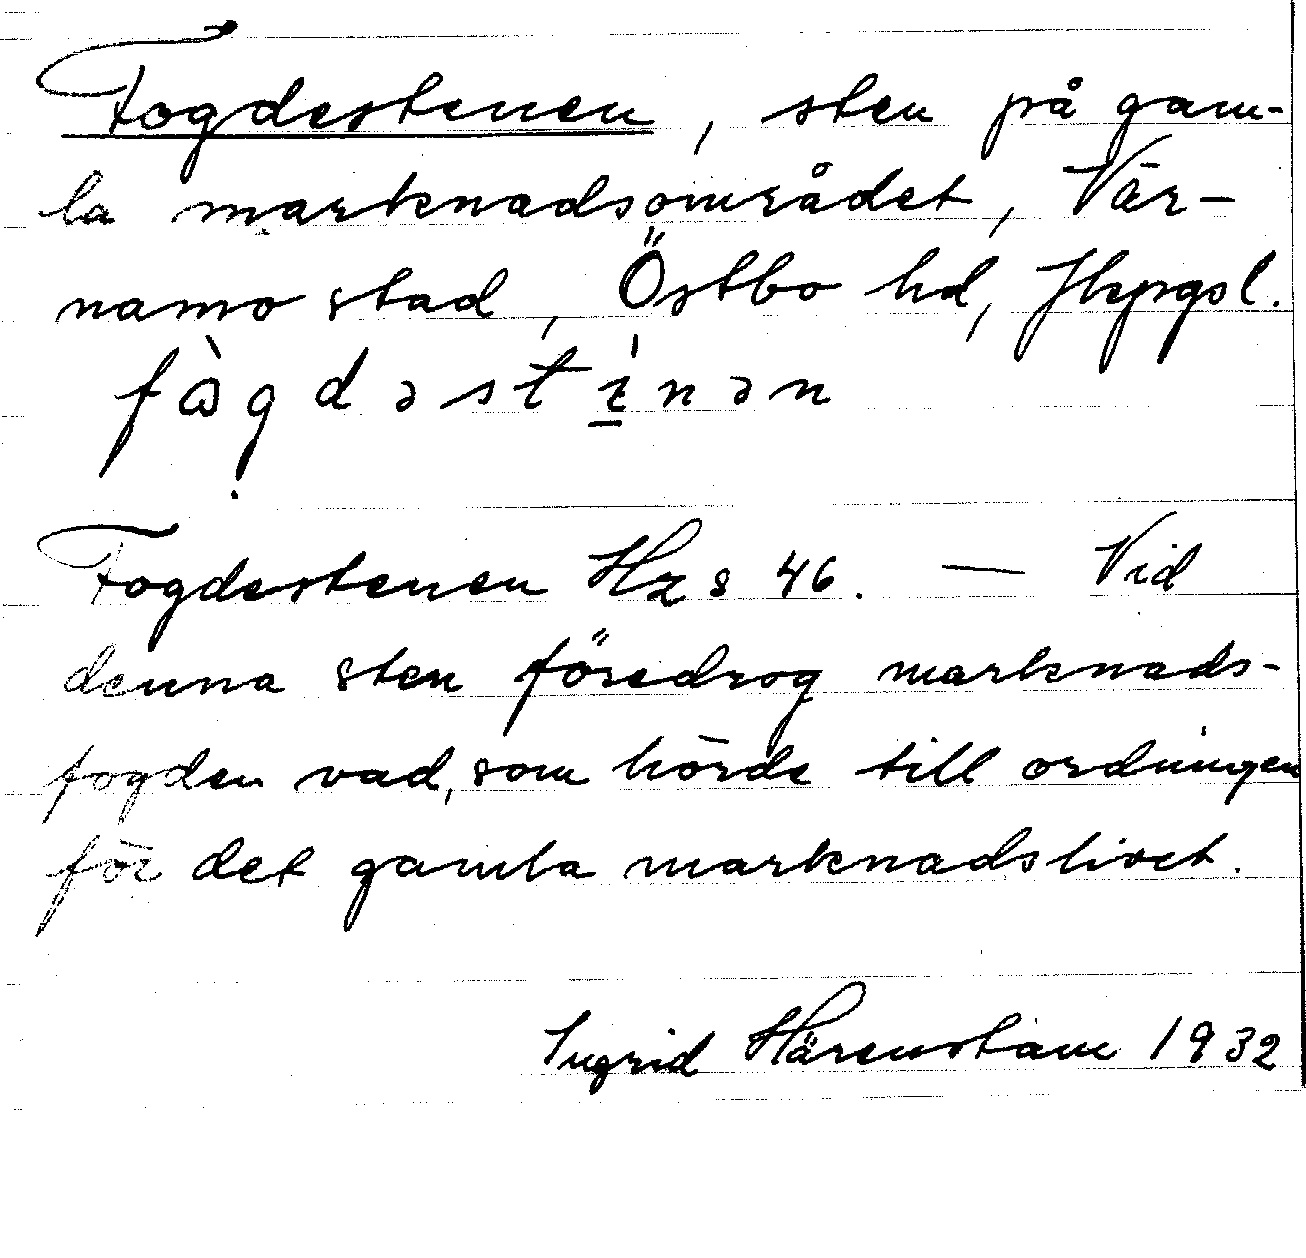 Fogdestenen, sten på gam-
la marknadsområdet, Vär-
namo stad, Östbo hd, Jkpgsl.
Fogdestenen Hz s 46. — Vid
denna sten föredrog marknads-
fogden vad, som hörde till ordningen
för det gamla marknadslivet.
Ingrid Härenstam 1932